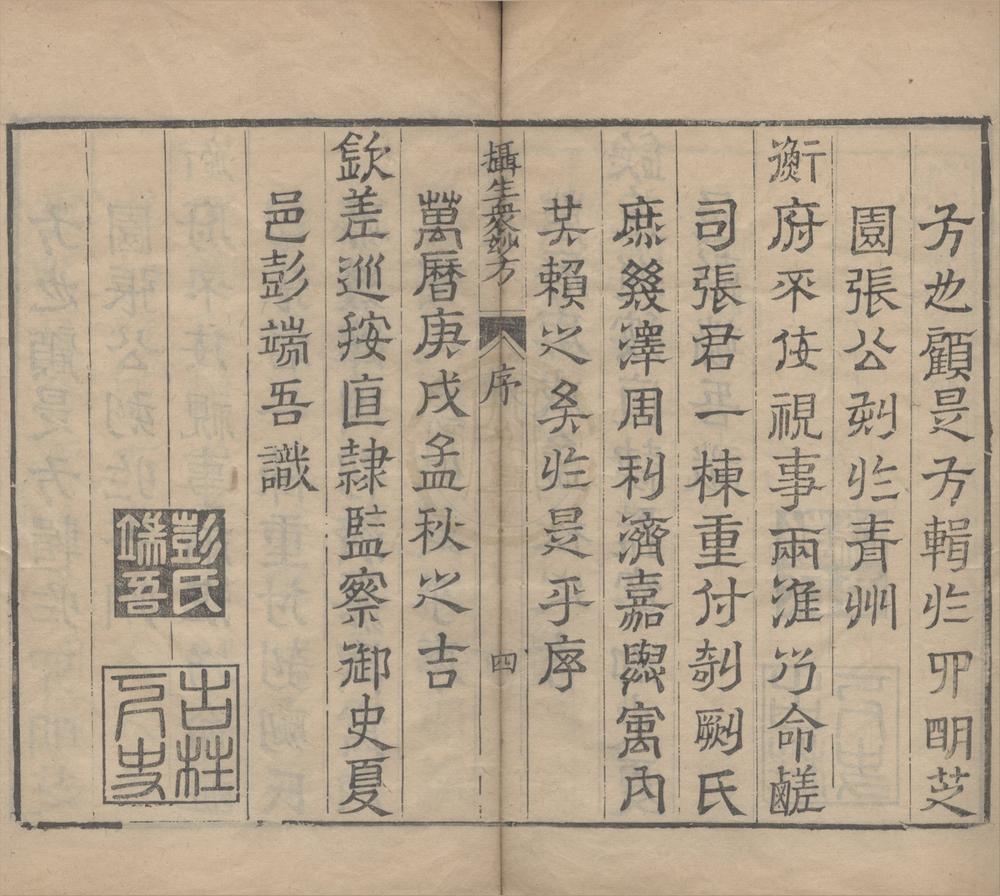 方也顧是方輯於四明芝
園張公刻於青州
衡府不佞視事兩淮乃命鹺
司張君一棟重付剞劂氏
庶幾澤周利濟嘉與寓內
共賴之矣於是乎序
攝生衆妙方
序
四
萬曆庚戌孟秋之吉
欽差巡按直隸監察御史夏
邑彭端吾識
彭氏
端吾
古柱
下史